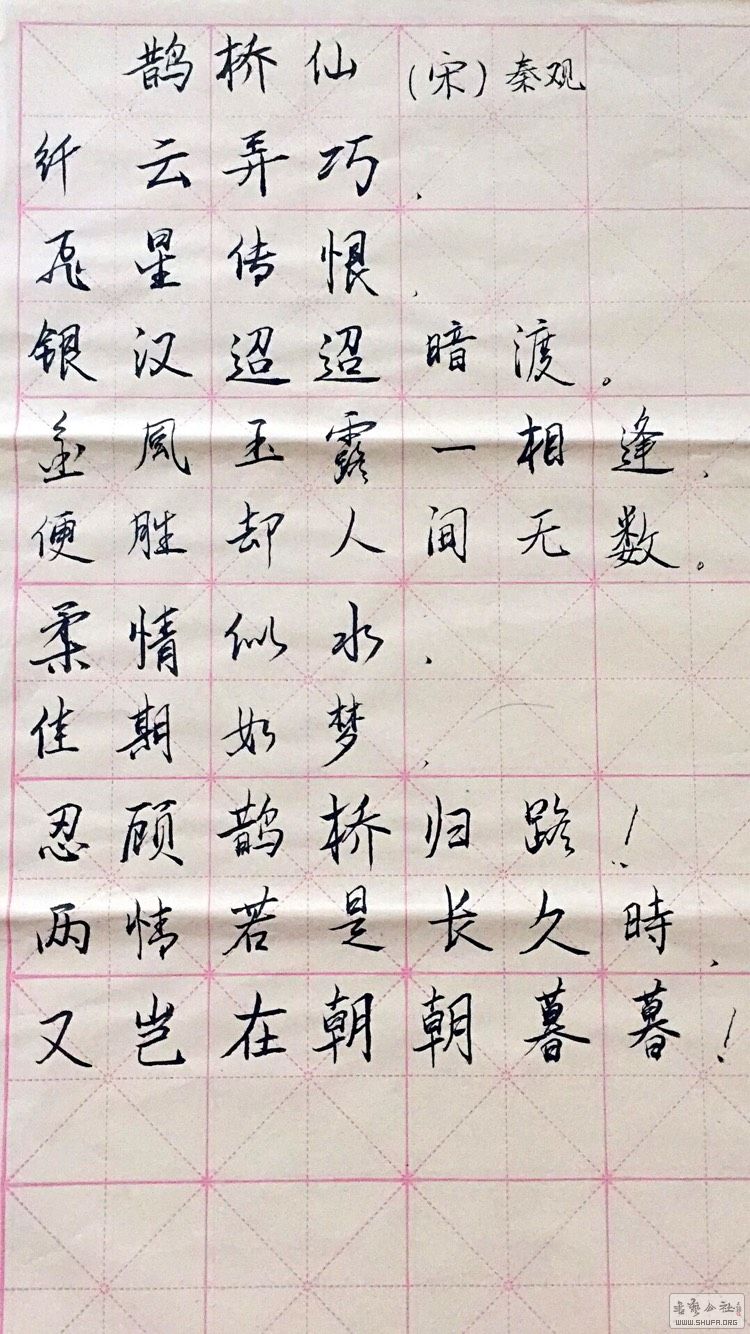 鹊桥仙（宋）秦观
纤云弄巧、
飞星传恨、
银汉迢迢暗渡。
金風玉露一相逢、
便胜却人间无数。
柔情似水、
佳期如梦、
忍顾鹊桥归路！
两情若是长久時、
又岂在朝朝暮暮！
书艺公社
WWW.SHUFA.ORG